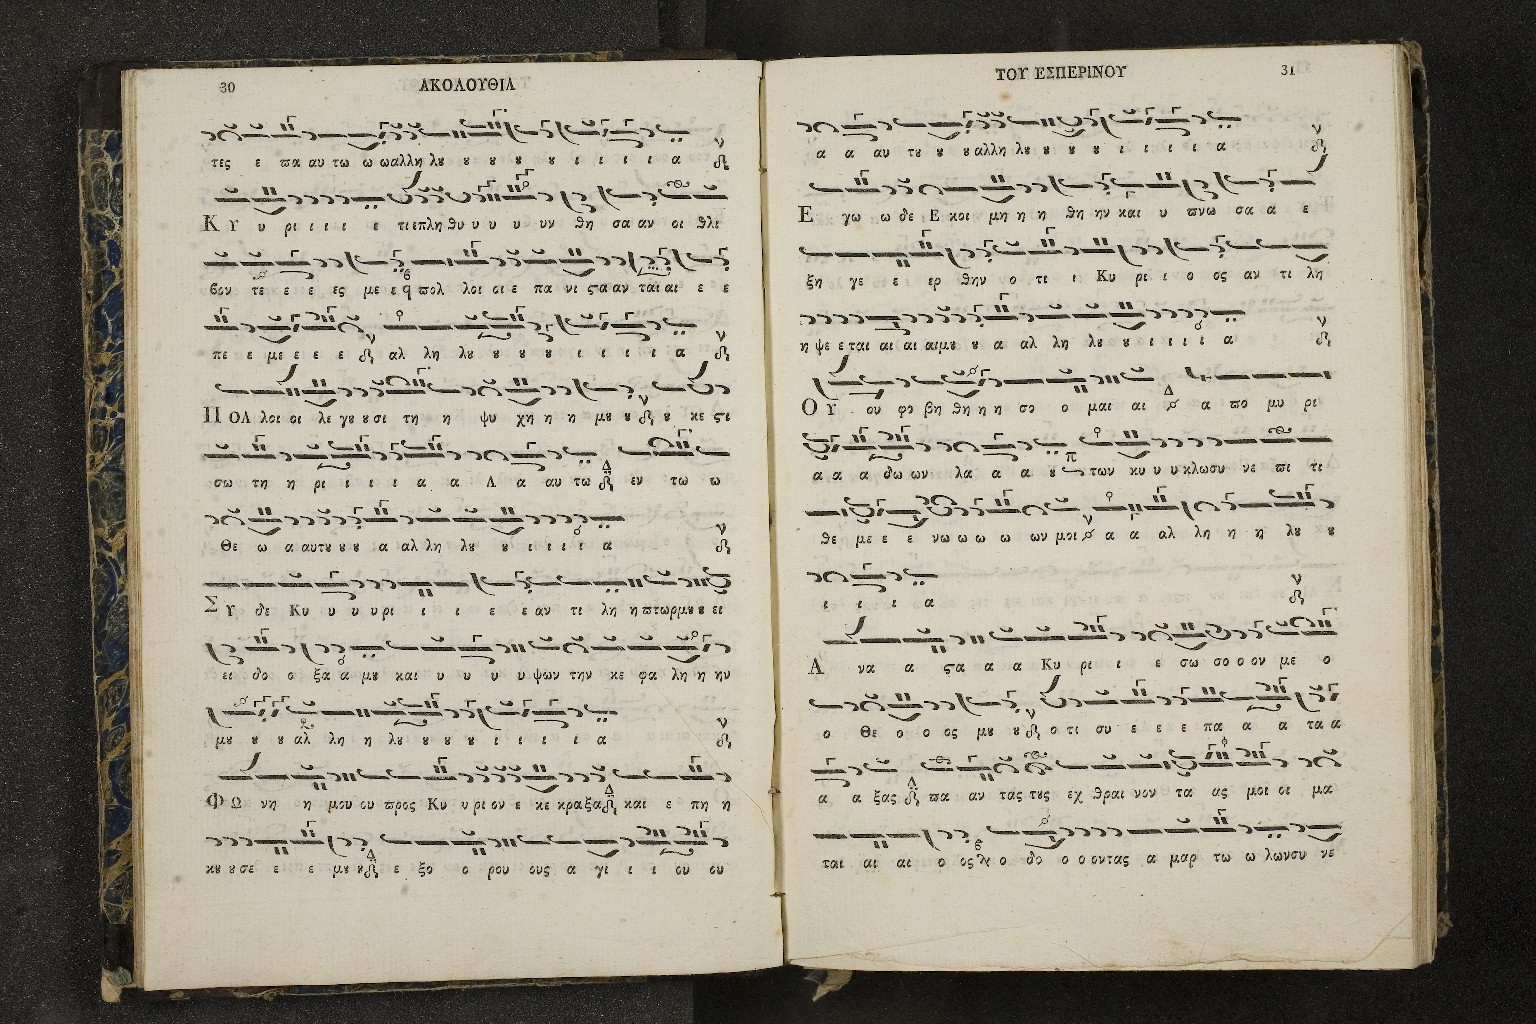 30 ΑΚΟΛΟΥΘΙΑ
τες ε πα αυ τω ω ωαλλη λȣ ȣ ȣ ȣ ȣ ι ι ι ι α
Κ Υ υ ρι ι ι ι ε τι επλη θυ υ υ υ υν θη σα αν οι θλι
βον τε ε ε ες με ε πολ λοι οι ε πα νι ϛα αν ται αι ε ε
πε ε με ε ε ε αλ λη λȣ ȣ ȣ ȣ ȣ ι ι ι ι α
Π ΟΛ λοι οι λε γȣ ȣσι τη η ψυ χη η η μȣ ȣ ȣ κε ϛι
σω τη η ρι ι ι ι α α Α α αυ τω εν τω ω
Θε ω α αυτȣ ȣ ȣ α αλ λη λȣ ȣ ι ι ι ι α
Σ Υ δε Κυ υ υ υρι ι ι ε ε αν τι λη η πτωρμȣ ȣ ει
ει δο ο ξα α μȣ και υ υ υ υ ψων την κε φα λη η ην
μȣ ȣ ȣ αλ λη η λȣ ȣ ȣ ȣ ι ι ι ι α
Φ Ω νη η μου ου προς Κυ υ ριον ε κε κραξα και ε πη η
κȣ ȣ σε ε ε μȣ ȣ ε ξο ο ρου ους α γι ι ι ου ου
ΤΟΥ ΕΣΠΕΡΙΝΟΥ 31
α α αυ τȣ ȣ ȣ αλλη λȣ ȣ ȣ ȣ ι ι ι ι α
Ε γω ω δε Ε κοι μη η η θη ην και υ πνω σα α ε
ξη γε ε ερ θην ο τι ι Κυ ρι ι ο ος αν τι λη
η ψε εται αι αι αιμȣ ȣ α αλ λη λȣ ȣ ι ι ι ι α
ΟΥ ου φο βη θη η η σο ο μαι αι α πο μυ ρι
α α α δω ων λα α α ȣ των κυ υ υ κλωσυ νε πι τι
θε με ε ε νω ω ω ω ων μοι α α αλ λη η η λȣ ȣ
ι ι ι α
Α να α ϛα α α Κυ ρι ι ε σω σο ο ον με ο
ο Θε ο ο ος μȣ ȣ ο τι συ ε ε ε πα α α τα α
α α ξας πα αν τας τȣς εχ θραι νον τα ας μοι οι μα
ται αι αι ο ος ο δο ο ο οντας α μαρ τω ω λωνσυ νε